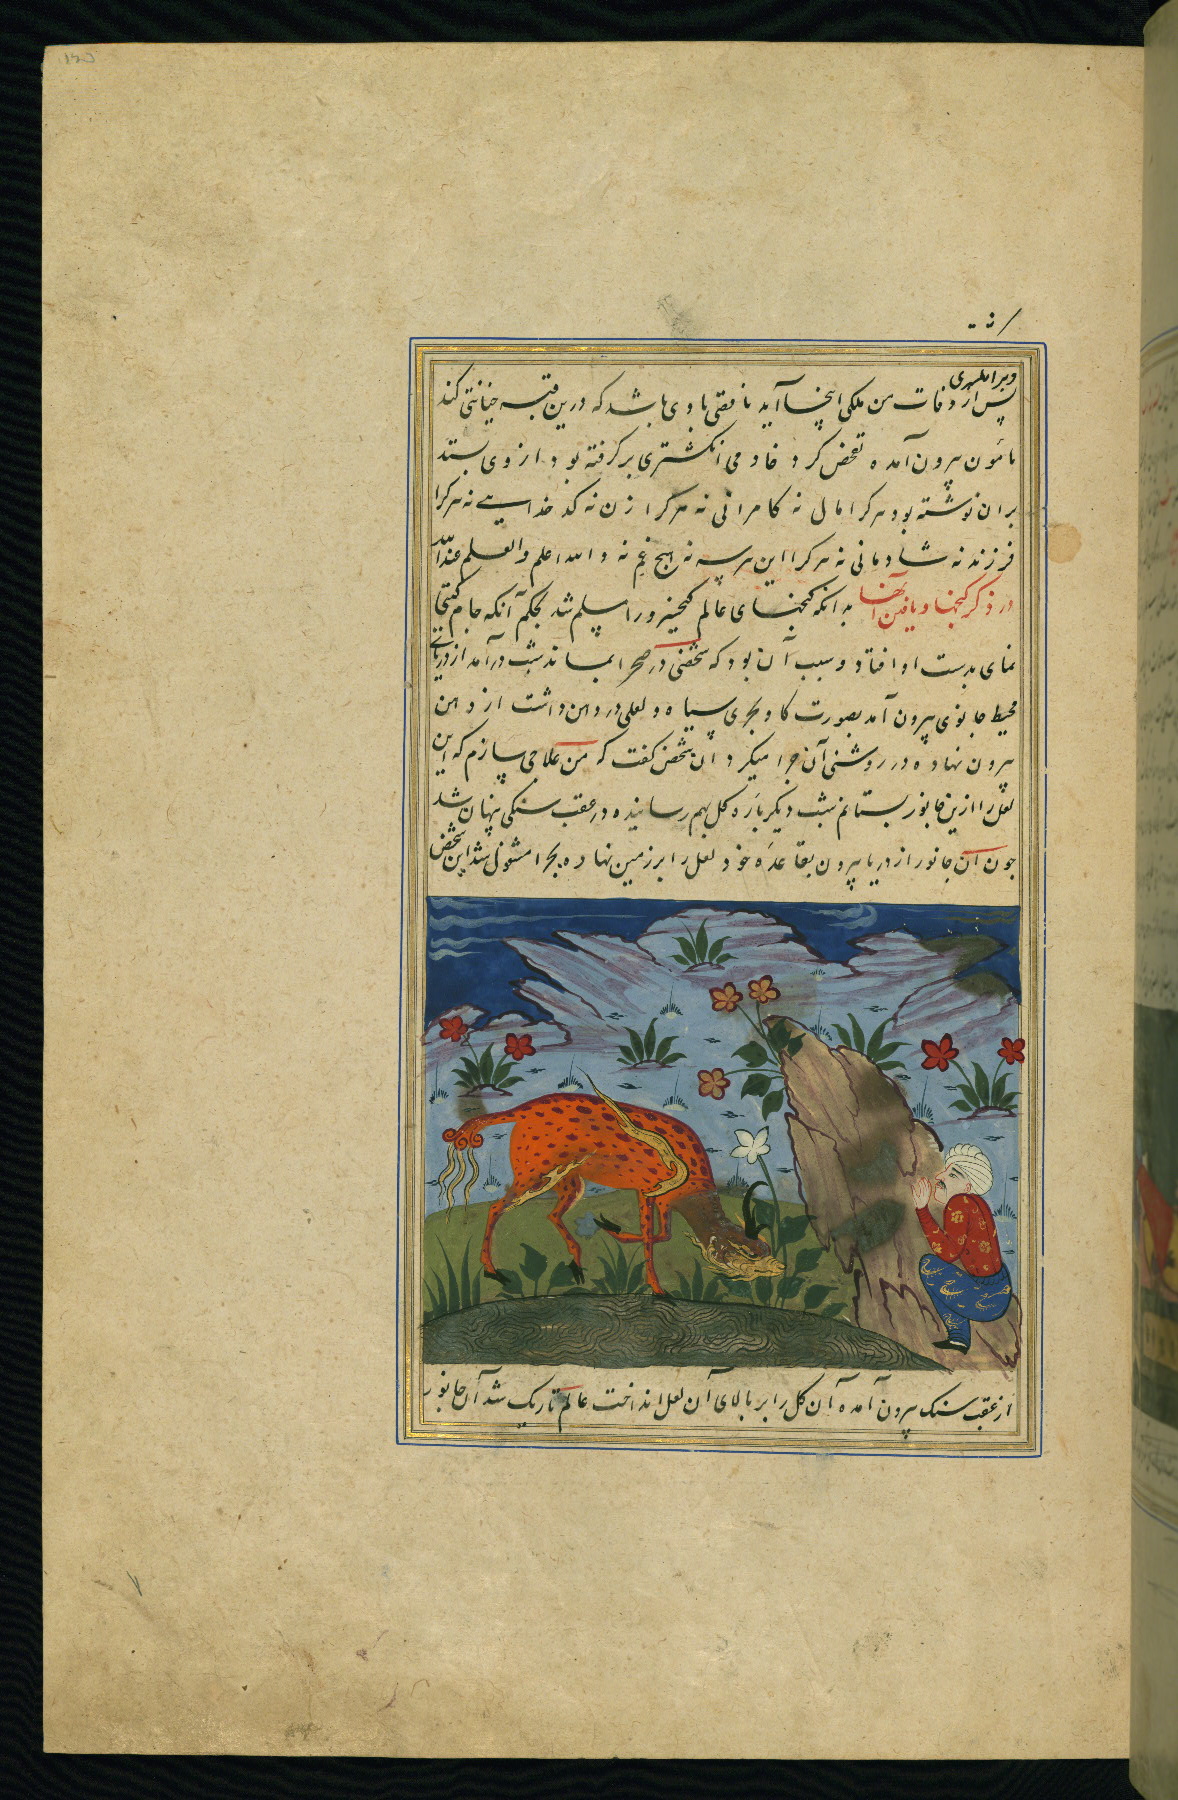 پس از وفات من ملکی اینجا آید نا فقی با وی باشد که درین قبه خیانتی کند
مأمون بیرون آمده تفحض کرد خادمی انکشتری برکرفته بود از وی بستد
بران نوشته بود هر کرا مال نه کامرانی نه هر کرا زن نه کد خدایی نه هر کرا
فرزند نه شادمانی نه هر کرا این هر سه نه هیچ غم نه والله اعلم والعلم عند الله
در ذکر کنجها و یافتن آنها بدانکه کنجهای عالم کیخسرو را مسلم شد بحکم آنکه جام کیتی
نمای بدست او افتاد و سبب آن بود که شخصی در صحرا بماند شب در آمد از دریای
محیط جانوری بیرون آمد بصورت کاو بحری سیاه و لعلی در دهن داشت از دهن
بیرون نهاده در روشنی آن چرا میکرد آن شخص کفت که من علاجی سازم که این
لعل را ازین جانور بستانم شب دیکر باره کل بهم رسانیده در عقب سنکی پنهان شد
چون آن جانور از دریا بیرون بقاعده خود لعل را بر زمین نهاده بچرا مشغول شد این شخص
از عقب سنک بیرون آمده آن کل را بر بالای آن لعل انداخت عالم تاریک شد آن جانور